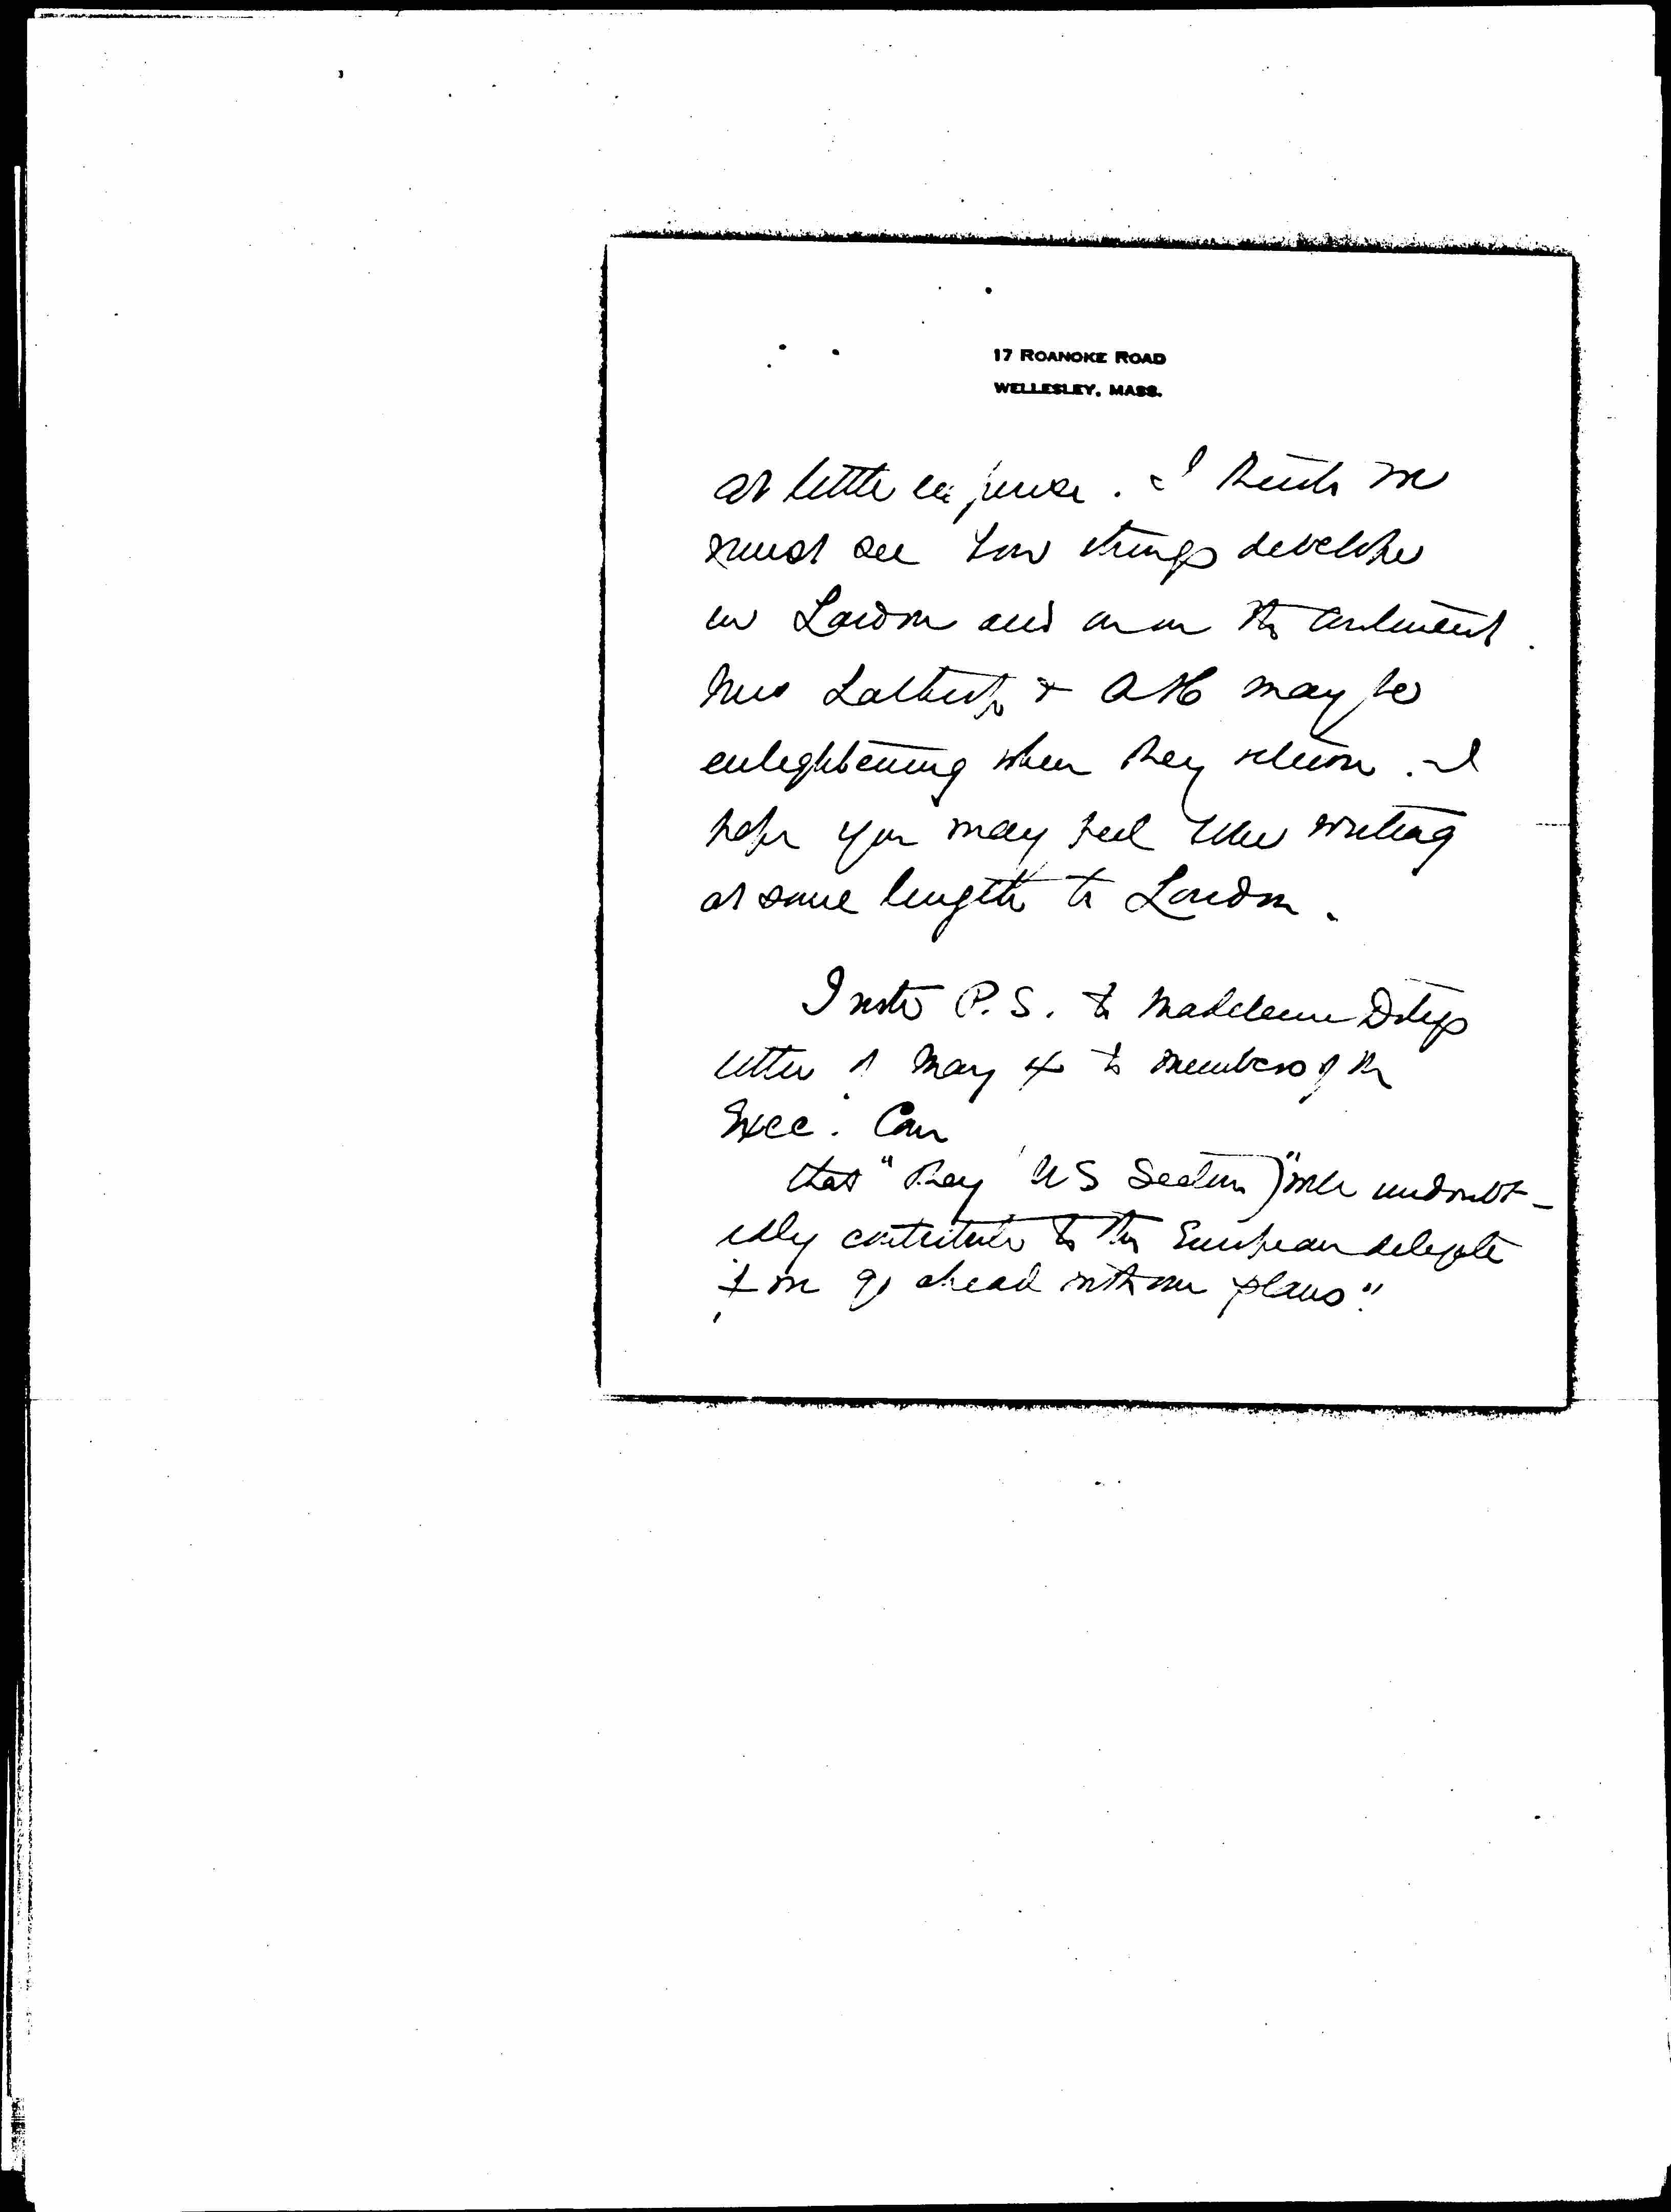 17 ROANOKE ROAD
WELLESLEY, MASS.
at little expense. I think we
must see how things develope
in London and on the Continent.
Mrs & AH may be
enlightening when they return. I
hope you may feel like writing
at some length to London.
I note P.S. to Madeleine Doty's
letter of May 4 to members of the
Exec. Com
that "they US Section)" will undoubt-
edly contribute to the European delegate
& we go ahead with our plans".